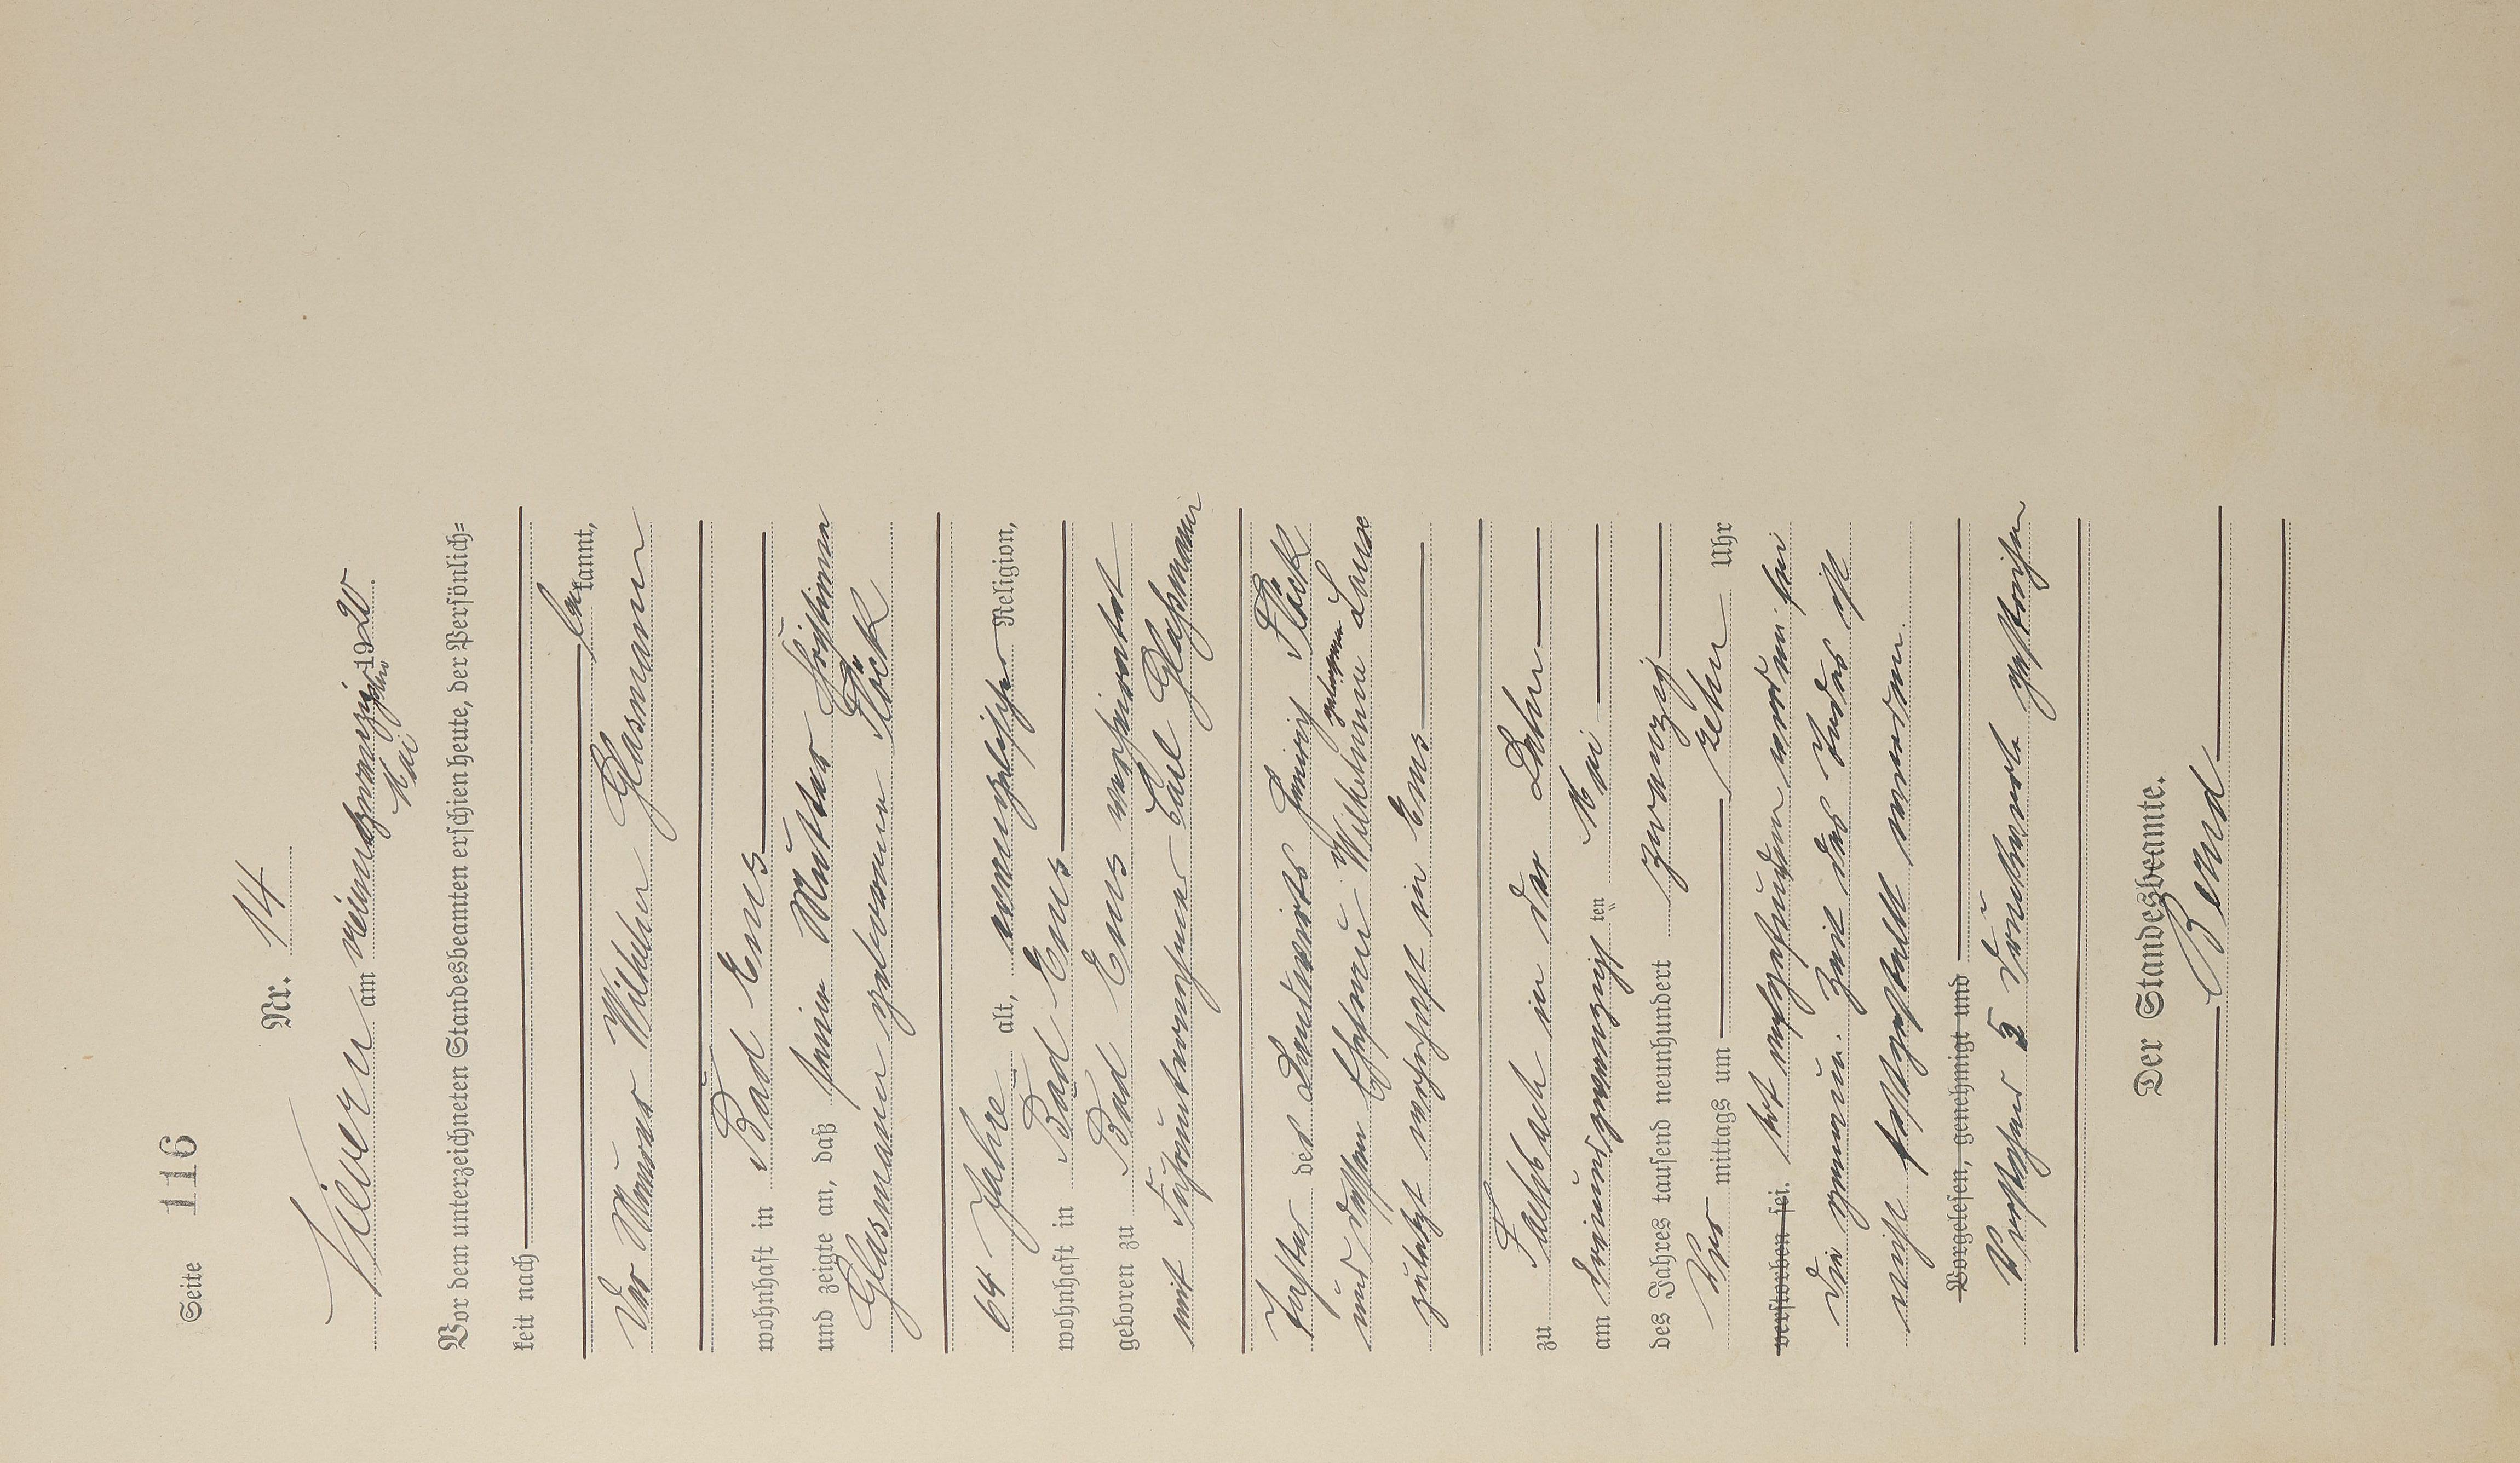 Seite 116
Nr. 14
Nievern am neunundzwanzigsten
Mai 1920
Vor dem unterzeichneten Standesbeamten erschien heute, der Persönlich=
keit nach
bekannt,
der Maurer Wilhelm Glasmann
wohnhaft in Bad Ems
und zeigte an, daß seine Mutter Christiana
Glasmann geborene Flöck
64 Jahre alt, evangelischer Religion,
wohnhaft in Bad Ems
geboren zu Bad Ems verheiratet
mit Fuhrunternehmer Carl Glaßmann
Tochter des Landwirts Heinrich Flöck
und dessen Ehefrau Wilhelmine geborenen Lotze
zuletzt wohnhaft in Ems
zu Fachbach in der Lahn
am dreiundzwanzigsten Mai
des Jahres tausend neunhundert zwanzig
Vor mittags um zehn Uhr
verstorben sei. tot aufgefunden worden sei
Die genaue Zeit des Todes ist
nicht festgestellt worden.
Vorgelesen, genehmigt und
Vorstehend 5 Druckworte gestrichen
Der Standesbeamte.
Bend